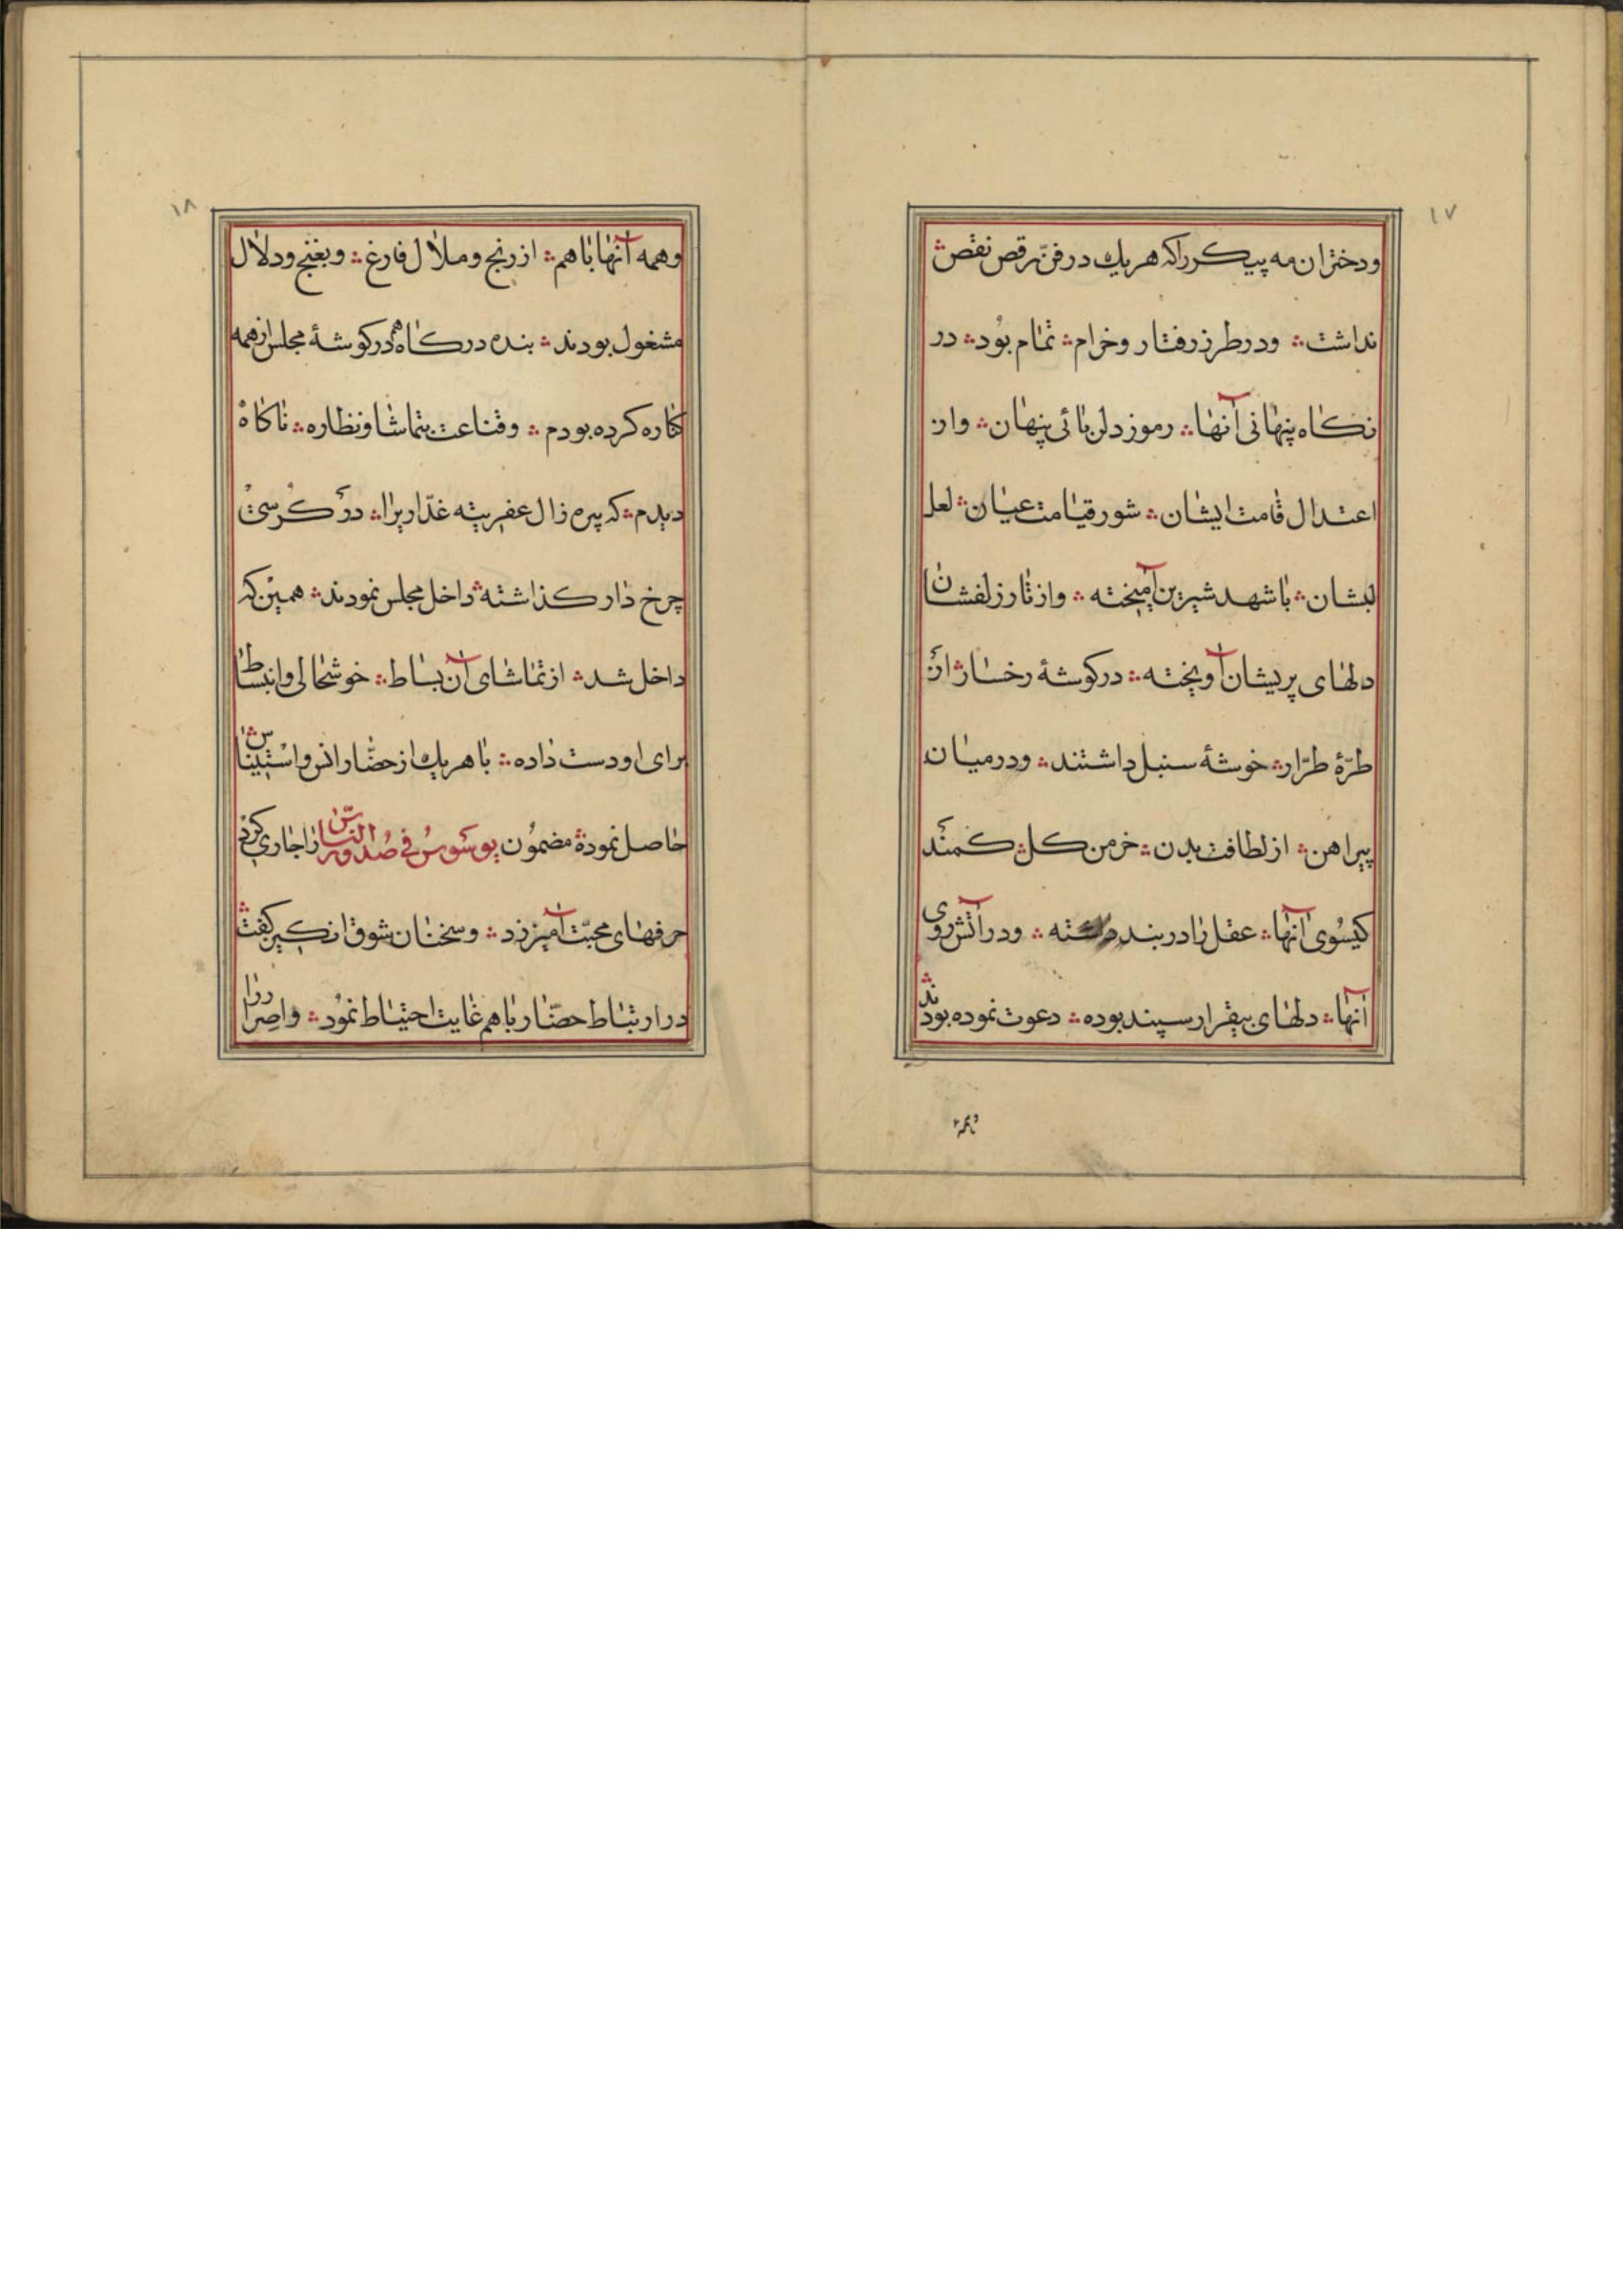 ١٧
ودختران مه پیکر را که هریك در فنّ رقص نقص
نداشت ؞ ودرطرز رفتار وخرام ؞ تمام بود ؞ در
نکاه پنهانی آنها ؞ رموز دلربائی پنهان ؞ واز
اعتدال قامت ایشان ؞ شور قیامت عیان ؞ لعل
لبشان ؞ با شهد شیرین آمیخته ؞ واز تار زلفشان
دلهای پریشان آویخته ؞ در کوشهٔ رخسار از آن
طرّهٔ طرّار ؞ خوشهٔ سنبل داشتند ؞ ودرمیان
پیراهن ؞ از لطافت بدن ؞ خرمن کل ؞ کمند
کیسوی آنها ؞ عقل را در بند ؞ ودر آتش روی
آنها ؞ دلهای بیقرار سپند بوده ؞ دعوت نموده بودند ؞
وهمه
١٨
وهمه آنها باهم ؞ از رنج وملال فارغ ؞ وبغنج ودلال
مشغول بودند ؞ بنده درکاه هم در کوشهٔ مجلس از همه
کناره کرده بودم ؞ وقناعت بتماشا ونظاره ؞ ناکاه
دیدم ؞ که پیره زال عفریته غدّاریرا ؞ در کرسیٔ
چرخ دار کذاشته ؞ داخل مجلس نمودند ؞ همین که
داخل شد ؞ از تماشای آن بساط ؞ خوشحالی وانبساط
برای او دست داده ؞ با هریك از حضّار انس واستیناس ؞
حاصل نموده ؞ مضمون یوسوس فی صدور النّاس را جاری کرد ؞
حرفهای محبّت آمیز زد ؞ وسخنان شوق انکیز کفت ؞
در ارتباط حضّار باهم غایت احتیاط نمود ؞ واصرار را